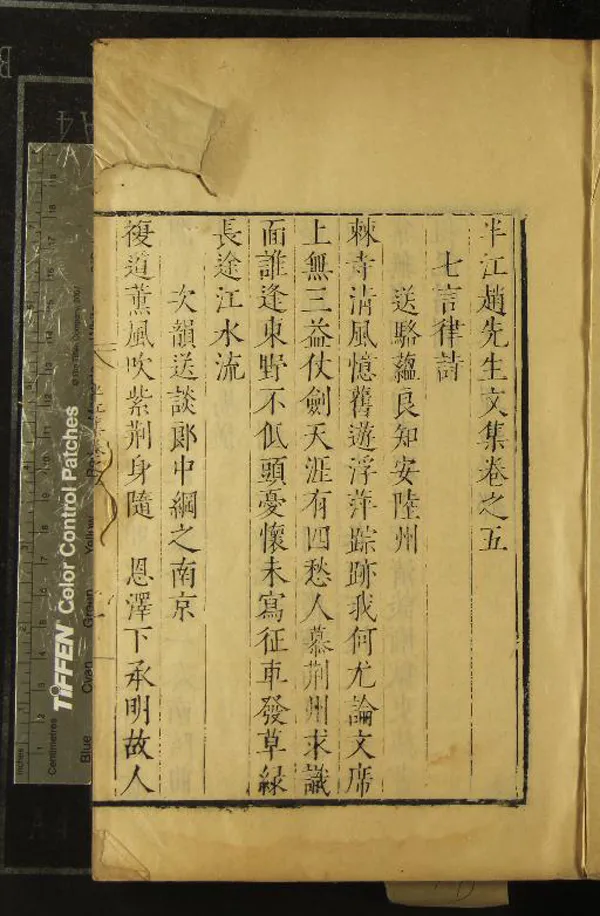 半江趙先生文集卷之五
七言律詩
送駱蘊良知安陸州
棘寺清風憶舊遊浮萍踪跡我何尤論文席
上無三益仗劍天涯有四愁人慕荆州求識
面誰逢東野不低頭憂懷未寫征車發草綠
長途江水流
次韻送談郎中綱之南京
複道薰風吹紫荆身隨 恩澤下承明故人
TIFFEN Color Control Patches
© The Tiffen Company, 2007
Centimetres
Inches
Blue
Cyan
Green
Yellow